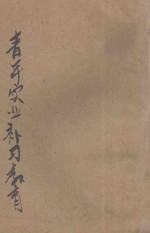 青年实业补习教育